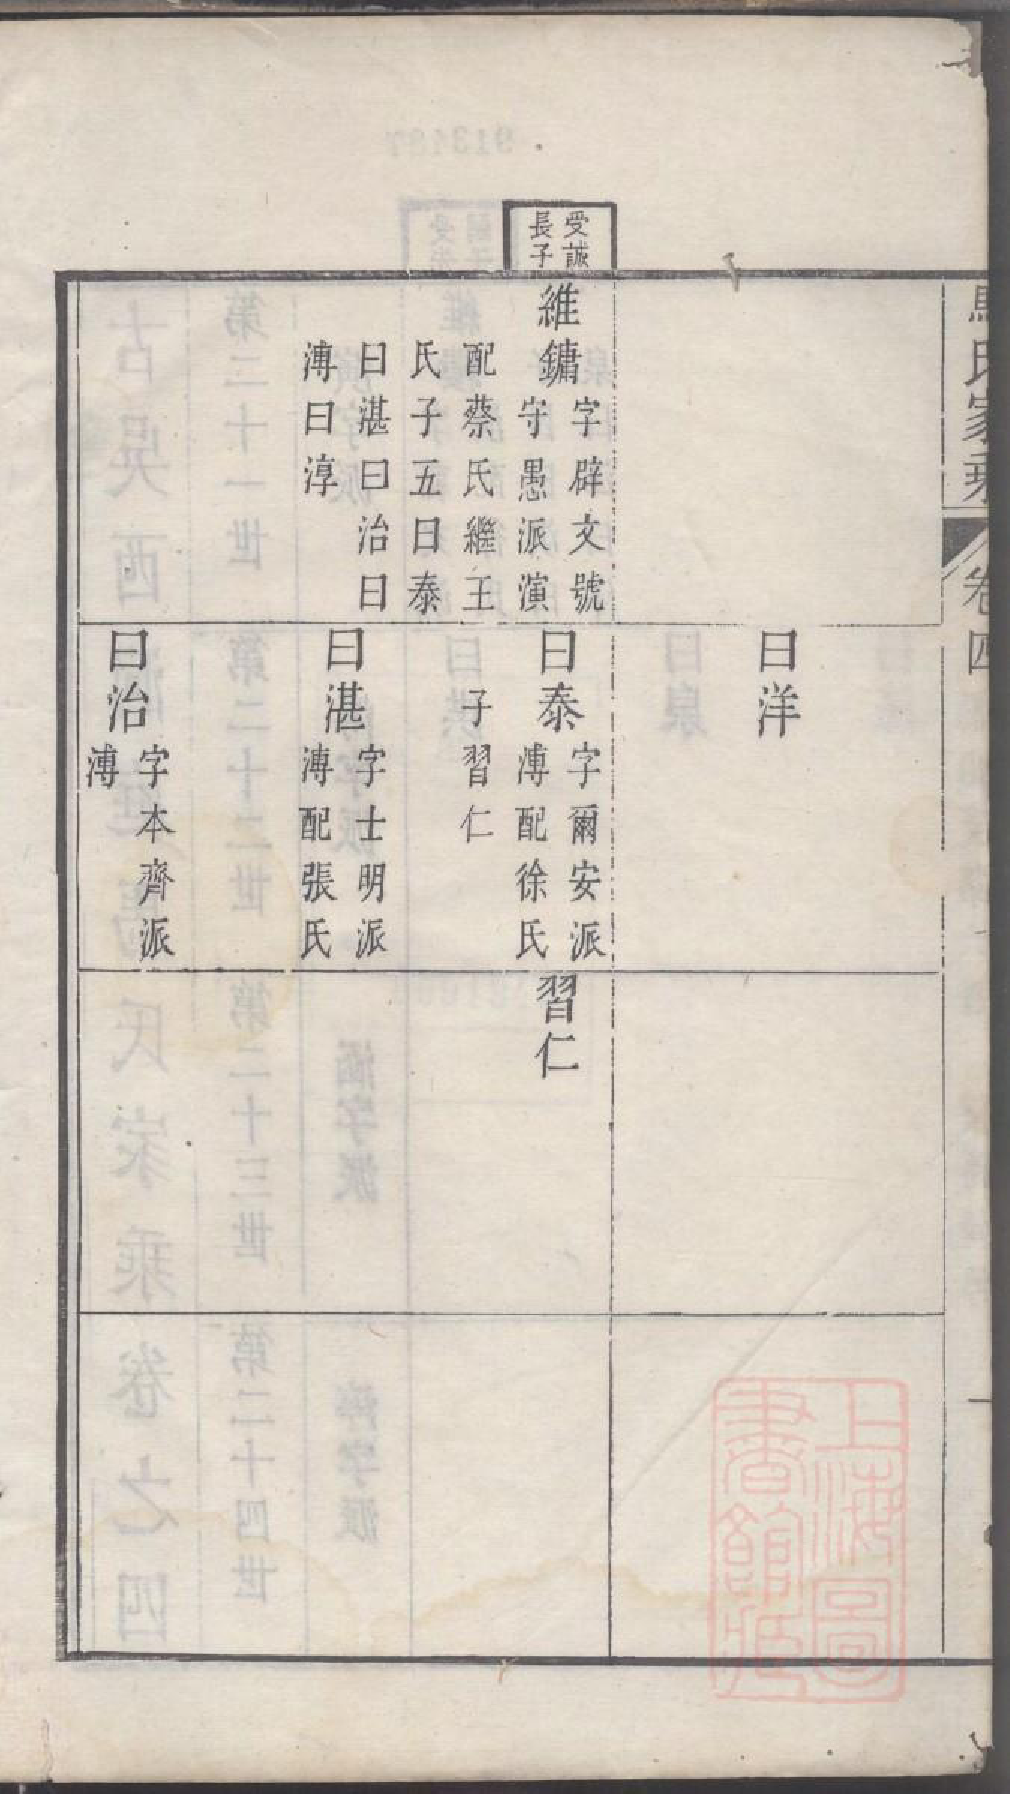 馬氏家乘
卷四
一
曰洋
受誠
長子
維鏞
字辟文號
守愚派演
配蔡氏繼王
氏子五曰泰
曰湛曰治曰
溥曰淳
曰泰
字爾安派
溥配徐氏
子習仁
曰湛
字士明派
溥配張氏
曰治
字本齊派
溥
習仁
上海圖
書館藏